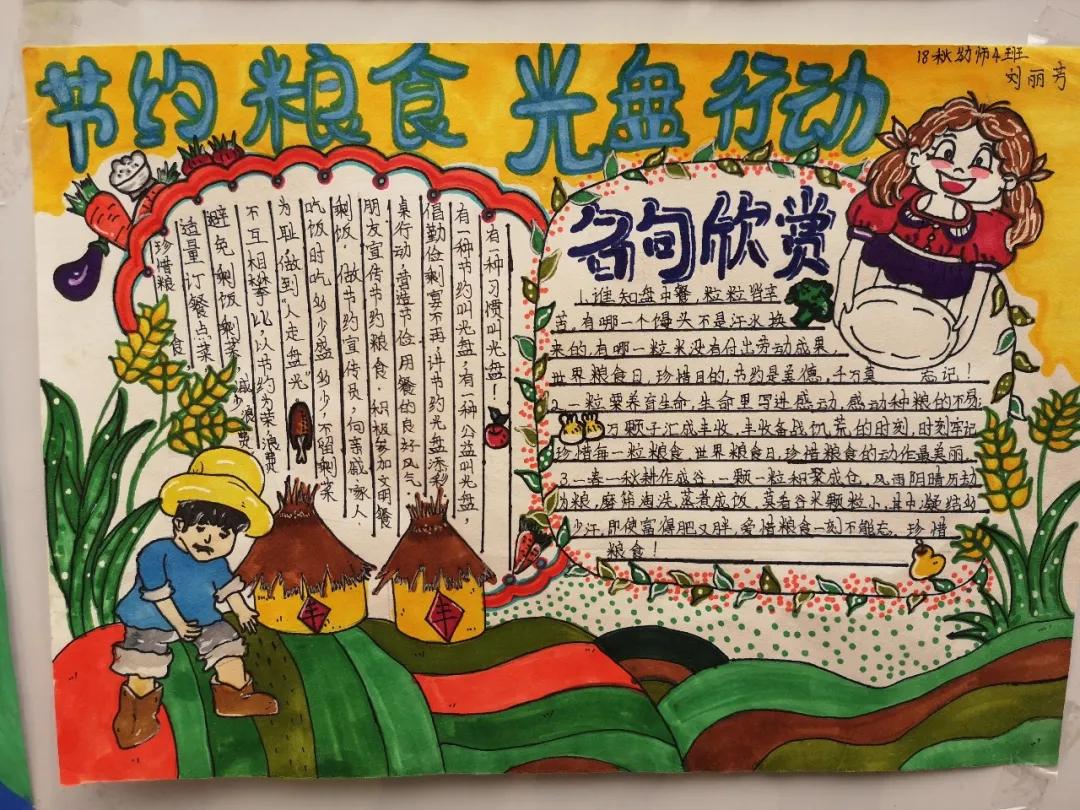 18秋幼师4班
刘丽芳
节约粮食 光盘行动
有一种习惯叫光盘！
有一种节约叫光盘，有一种公益叫光盘，
倡勤俭剩宴不再讲节约光盘添彩
桌行动，营造节俭用餐的良好风气
朋友宣传节约粮食。积极参加文明餐
剩饭，做节约宣传员，向亲戚、家人、
吃饭时吃多少盛多少，不留剩菜
为耻，做到“人走盘光”
不互相攀比，以节约为荣，浪费
避免剩饭剩菜，减少浪费
适量订餐点菜，
珍惜粮食
名句欣赏
1.谁知盘中餐，粒粒皆辛
苦，有哪一个馒头不是汗水换
来的，有哪一粒米没有付出劳动成果，
世界粮食日，珍惜目的，节约是美德，千万莫忘记！
2.一粒粟养育生命，生命里写进感动，感动种粮的不易；
万颗子汇成丰收，丰收备战饥荒的时刻，时刻牢记
珍惜每一粒粮食，世界粮食日，珍惜粮食的动作最美丽。
3.一春一秋耕作成谷，一颗一粒积聚成仓，风雨阴晴历劫
为粮，磨筛淘洗，蒸煮成饭，莫看谷米颗粒小，其中凝结多
少汗，即使富得肥又胖，爱惜粮食一刻不能忘，珍惜
粮食！
丰
丰